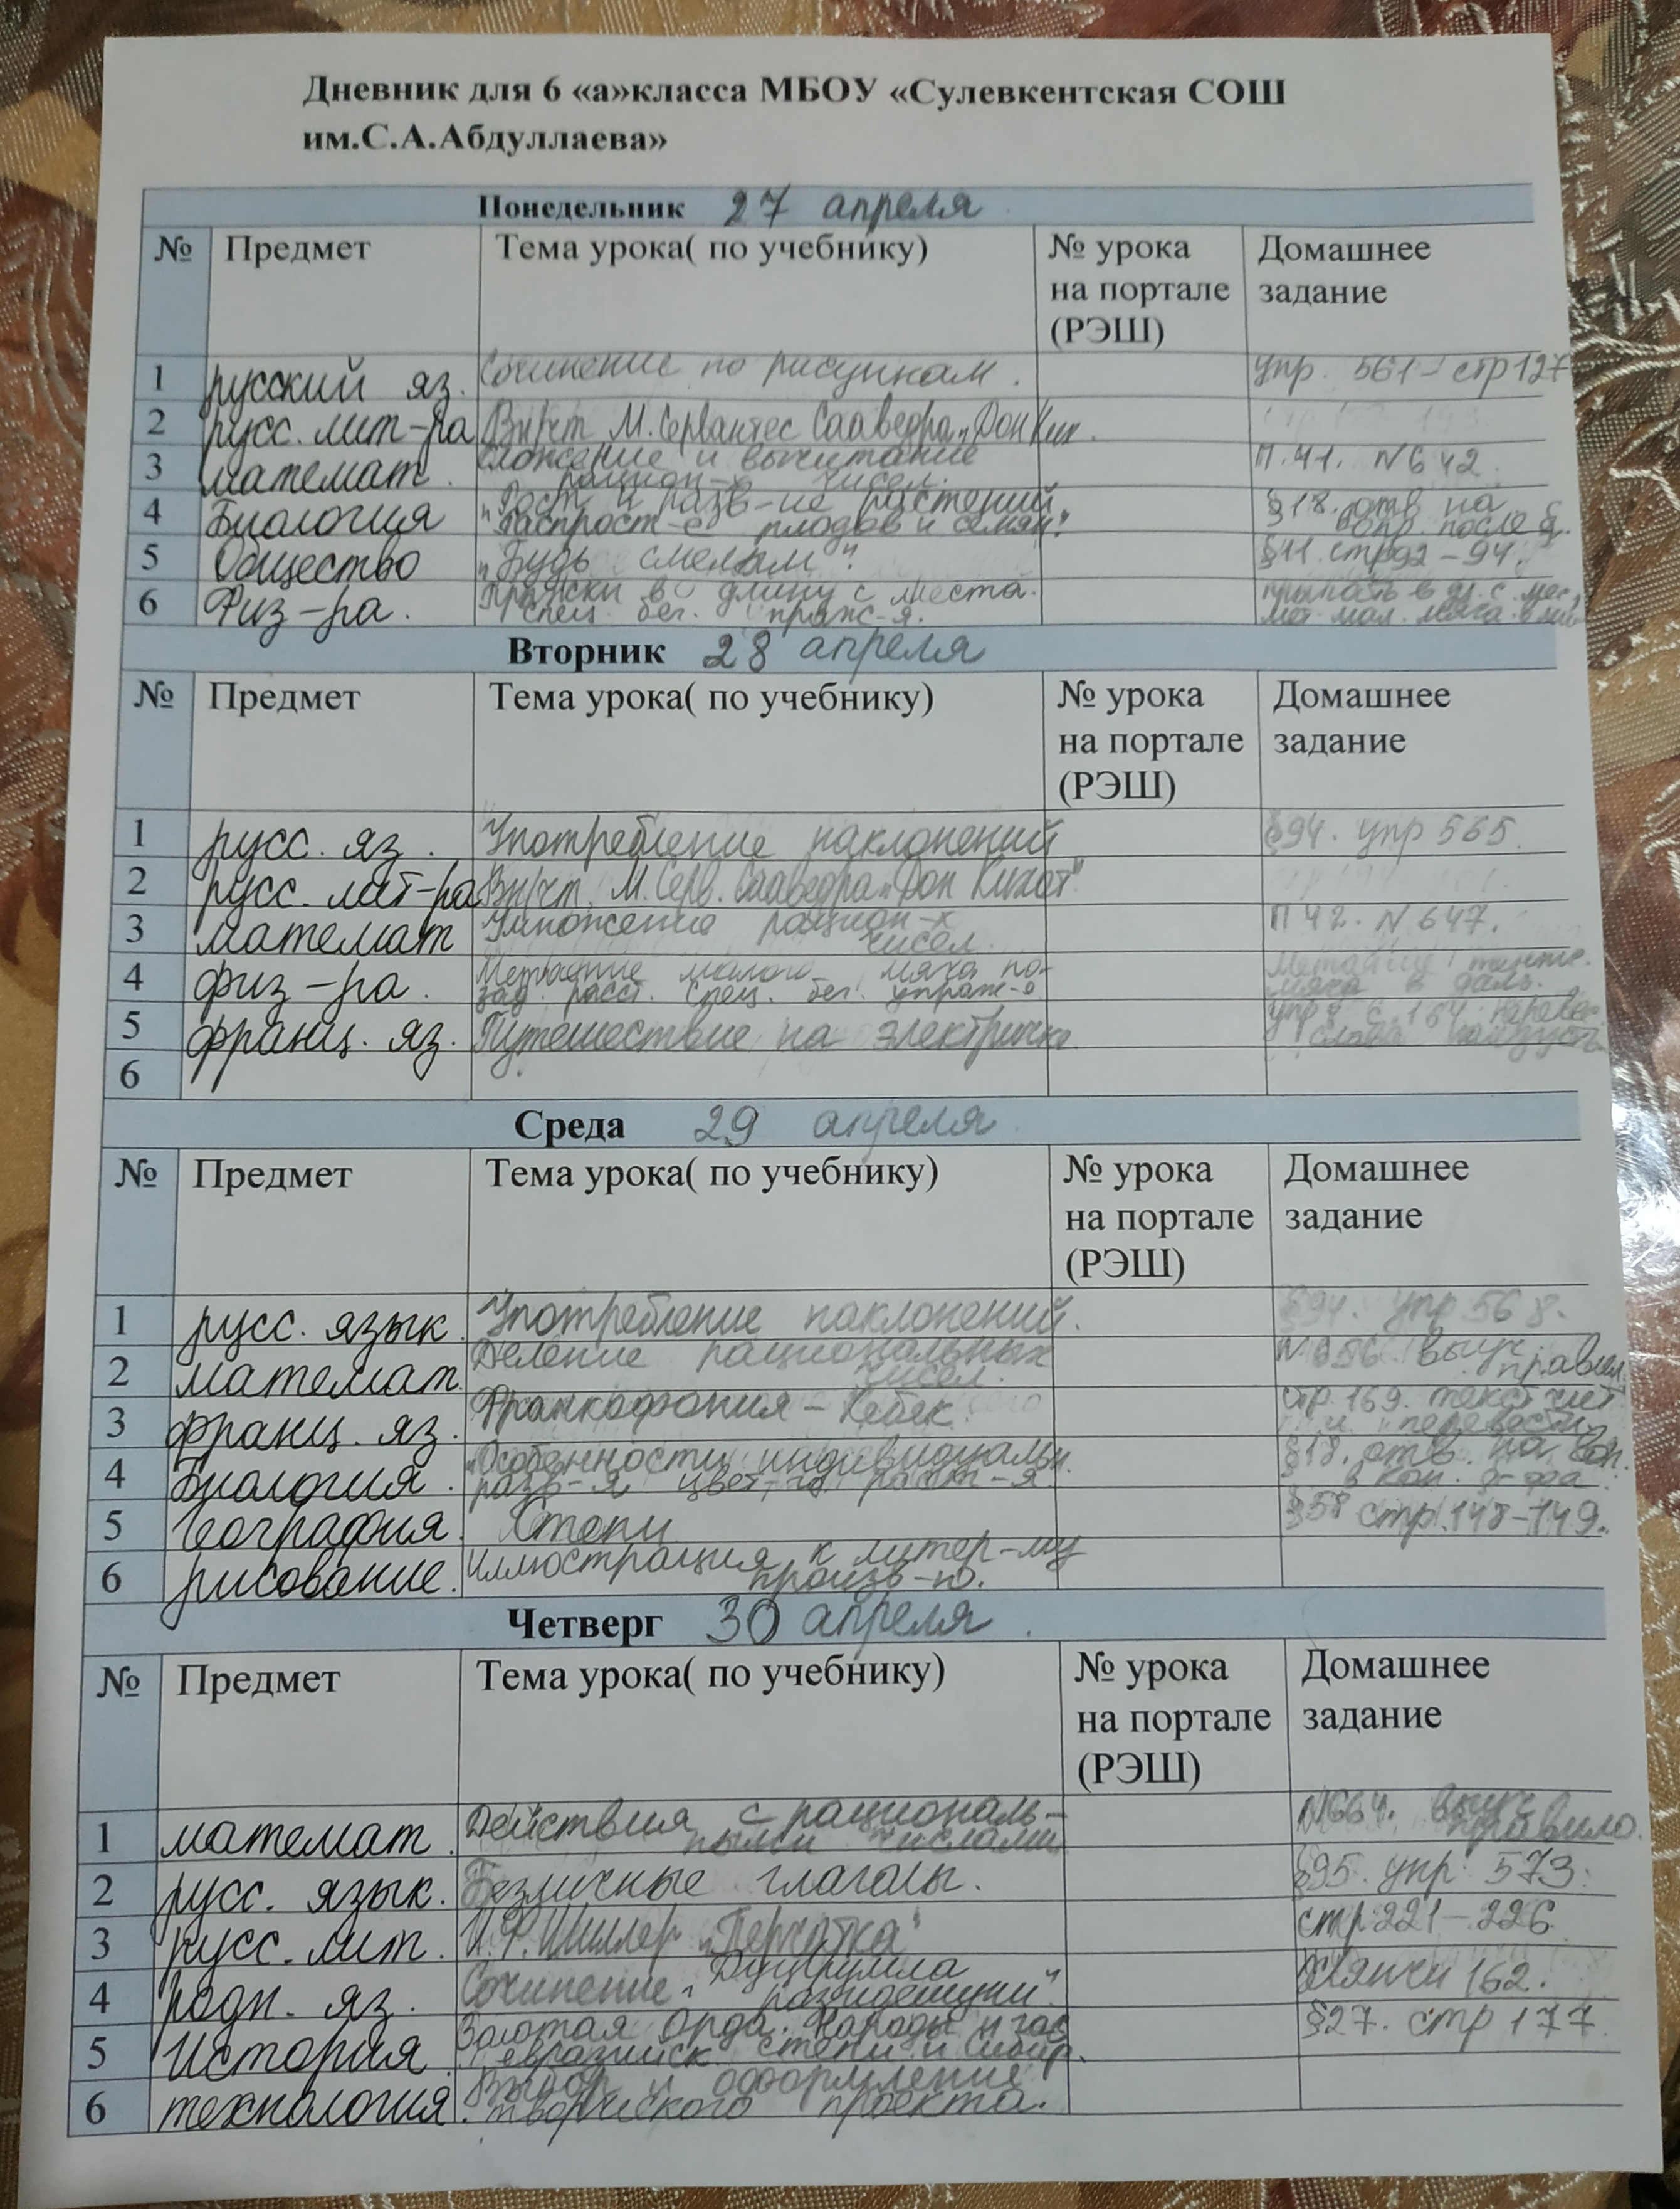 Дневник для 6 «а»класса МБОУ «Сулевкентская СОШ
им.С.А.Абдуллаева»
Понедельник 27 апреля
№ Предмет Тема урока( по учебнику) № урока Домашнее
на портале задание
(РЭШ)
1 русский яз. Сочинение по рисункам. упр. 561- стр 127
2 русс. лит-ра Вн/чт М. Сервантес Сааведра „Дон Ких.
3 математ. Сложение и вычитание П.41. №642.
рацион-х чисел.
4 Биология „Рост и разв-ие растений. §18. отв на
Распрост-е плодов и семян." вопр после §.
5 Общество „Будь смелым". §11. стр92-94.
6 Физ-ра. Прыжки в длину с места. прыгать в дл. с мес,
Спец. бег. упраж-я. мет. мал. мяча
Вторник 28 апреля
№ Предмет Тема урока( по учебнику) № урока Домашнее
на портале задание
(РЭШ)
1 русс. яз. Употребление наклонений §94. упр 565.
2 русс. лит-ра Вн/чт. М. Серв. Сааведра „Дон Кихот"
3 математ Умножение рацион-х П 42. №647.
чисел.
4 физ-ра. Метание малого мяча по- Метание теннис.
зад. расст. Спец. бег. упраж-я мяча в даль.
5 франц. яз. Путешествие на электричке упр с. 164
слова наизусть
6
Среда 29 апреля
№ Предмет Тема урока( по учебнику) № урока Домашнее
на портале задание
(РЭШ)
1 русс. язык. Употребление наклонений. §94. упр 568.
2 математ. Деление рациональных №656. выуч
чисел. правил.
3 франц. яз. Франкофония - Кебек. стр. 169. текст чит
и перевести
4 Биология. „Особенности индивидуальн. §18. отв. на воп.
разв-я цвет-го раст-я. в кон.
5 География. Степи §58 стр.148-149.
6 рисование. Иллюстрация к литер-му
произв-ю.
Четверг 30 апреля.
№ Предмет Тема урока( по учебнику) № урока Домашнее
на портале задание
(РЭШ)
1 математ. Действия с рациональ- №664. выуч
ными числами правило.
2 русс. язык. Безличные глаголы. §95. упр. 573.
3 русс. лит. И.Ф. Шиллер „Перчатка" стр 221-226.
4 родн. яз. Сочинение „ 162.
5 История. Золотая Орда. Народы и гос §27. стр 177.
евразийск. степи и Сибир.
6 технология. Выбор и оформление
творческого проекта.